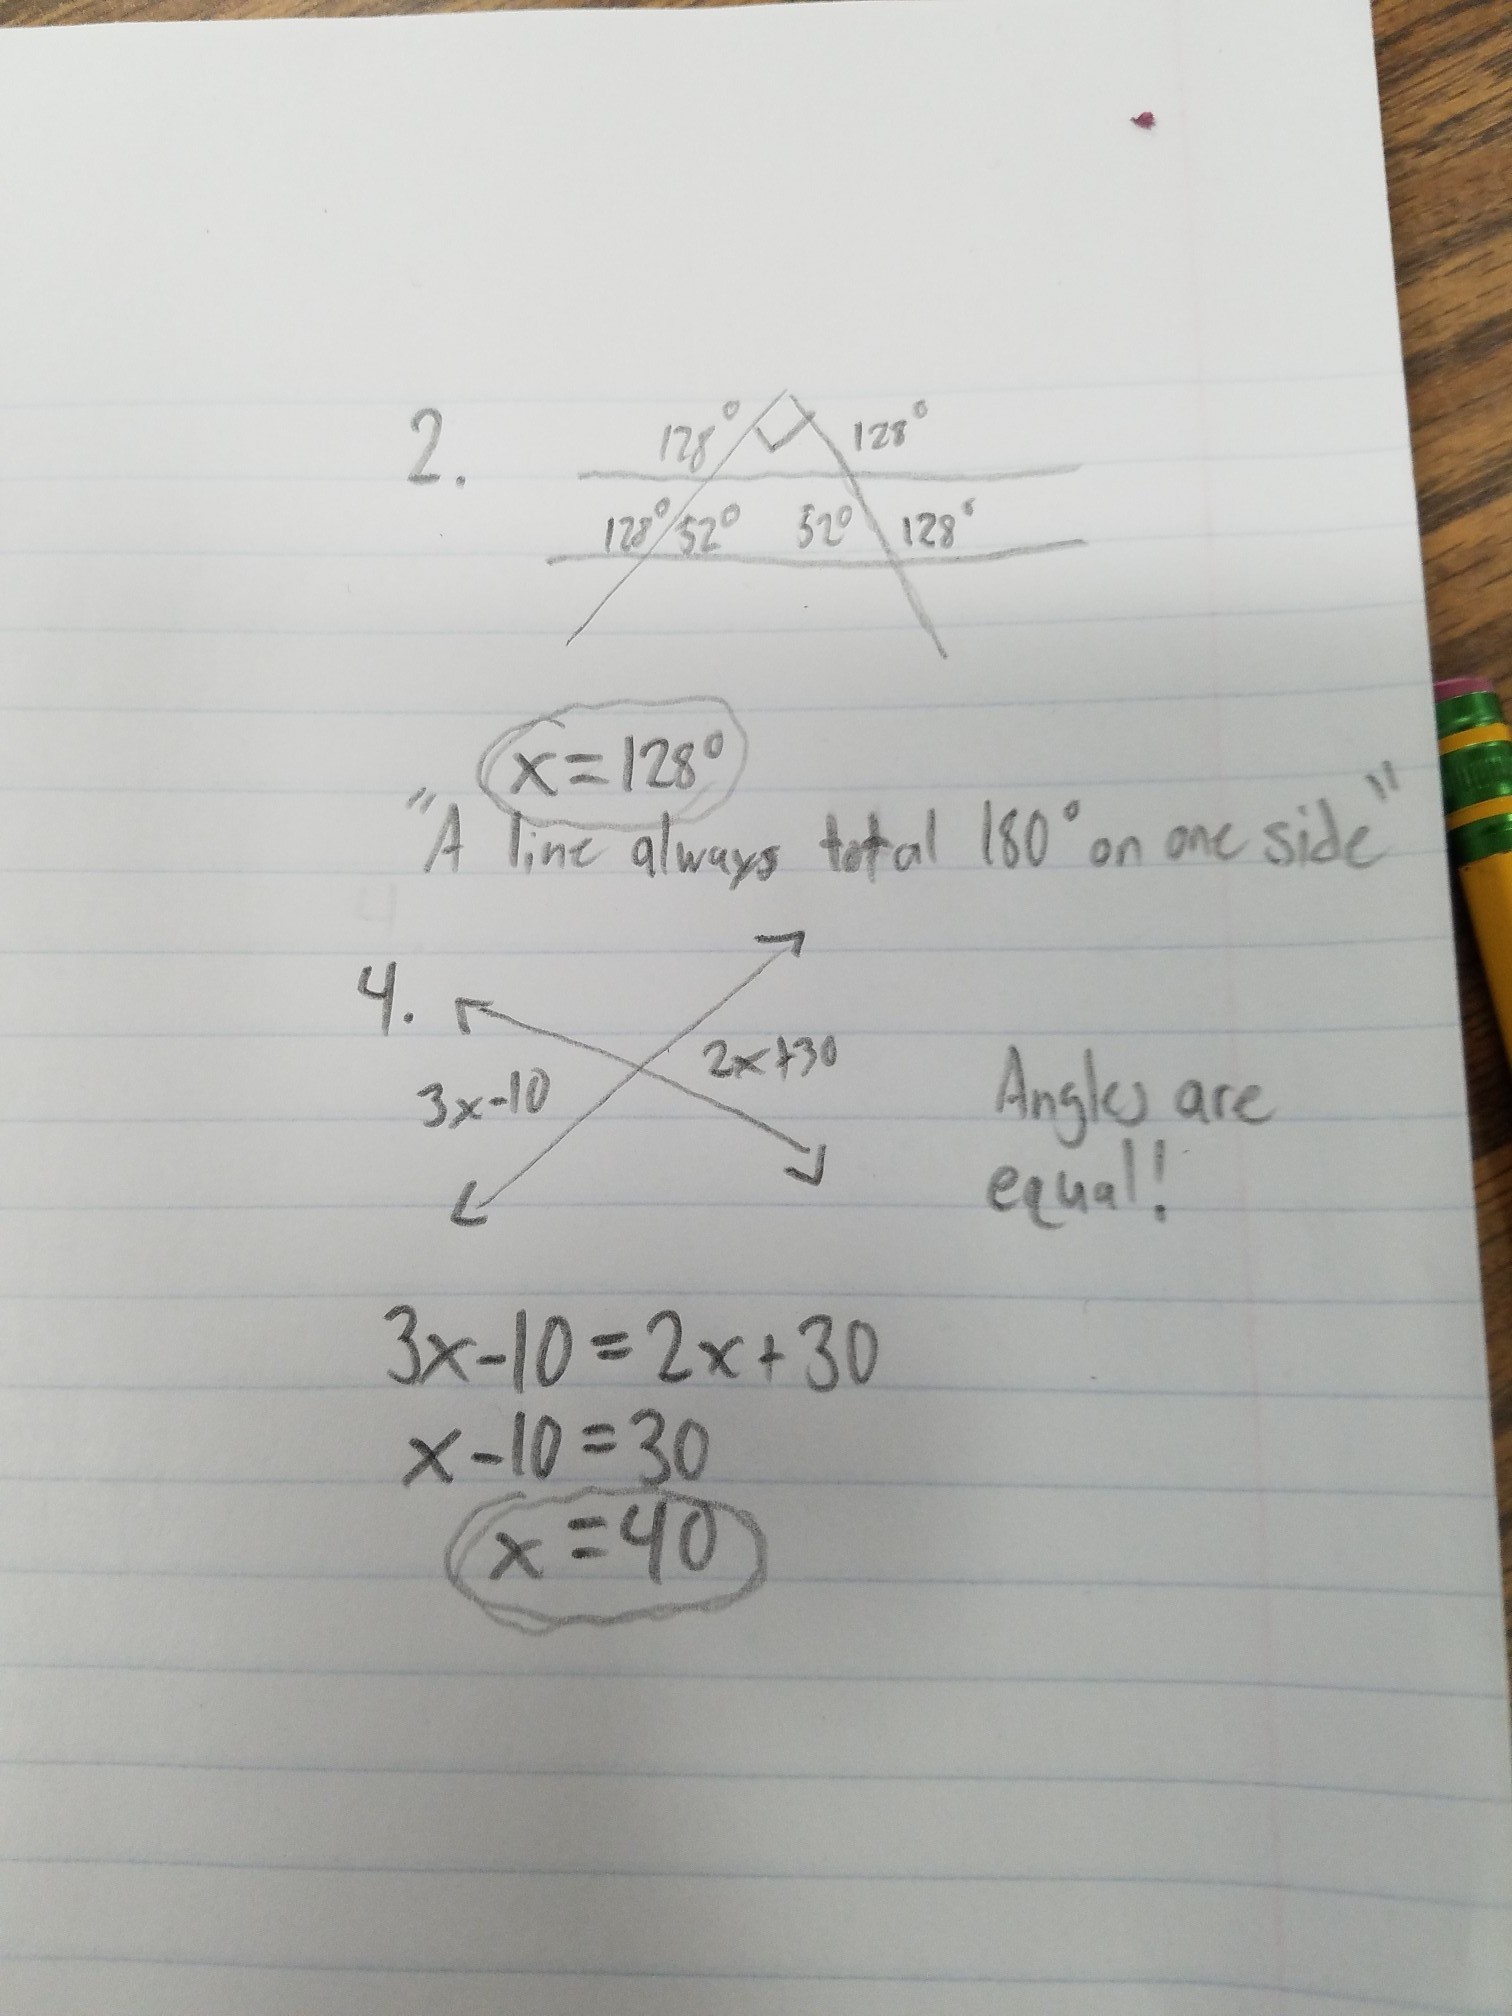 2.
128° 128°
128° 52° 52° 128°
x=128°
"A line always total 180° on one side"
4.
2x+30
3x-10
Angles are
equal!
3x-10=2x+30
x-10=30
x=40